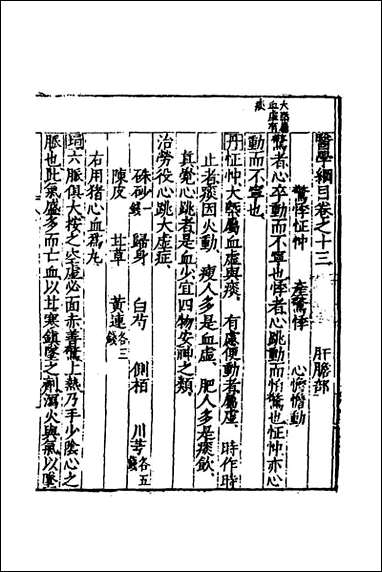 醫學綱目卷之十三　肝膽部
驚悸怔忡　產驚悸　心憺憺動
大槩屬血虛有痰
驚者心卒動而不寧也悸者心跳動而怕驚也怔忡亦心
動而不寧也
丹怔忡大槩屬血虛與痰　有慮便動者屬虛　時作時
止者痰因火動　瘦人多是血虛　肥人多是痰飲
真覺心跳者是血少宜四物安神之類
治勞役心跳大虛症
硃砂　歸身　白芍　側栢　川芎各五錢
陳皮　甘草　黃連各三錢
右用猪心血爲丸
垣六脈俱大按之空虛必面赤善驚上熱乃手少陰心之
脈也此氣盛多而亡血以甘寒鎮墜之劑瀉火與氣以墜